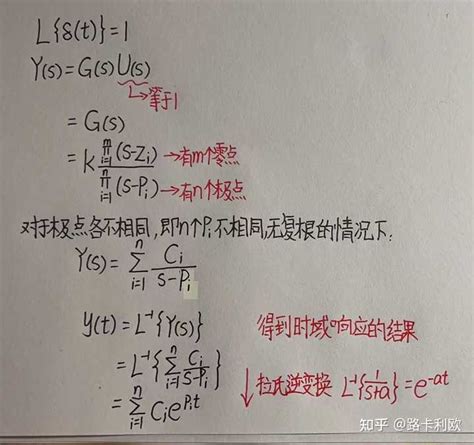 L{δ(t)}=1
Y(s)=G(s)U(s)
↳等于1
=G(s)
=k \frac{\prod_{i=1}^{m}(s-z_i)}{\prod_{i=1}^{n}(s-P_i)} →有m个零点 →有n个极点
对于极点各不相同,即n个P_i不相同,无复根的情况下:
Y(s)=\sum_{i=1}^{n}\frac{C_i}{s-P_i}
y(t)=L^{-1}{Y(s)} 得到时域响应的结果
=L^{-1}{\sum_{i=1}^{n}\frac{C_i}{s-P_i}} ↓拉氏逆变换 L^{-1}{\frac{1}{s+a}}=e^{-at}
=\sum_{i=1}^{n}C_ie^{P_it}
知乎 @路卡利欧